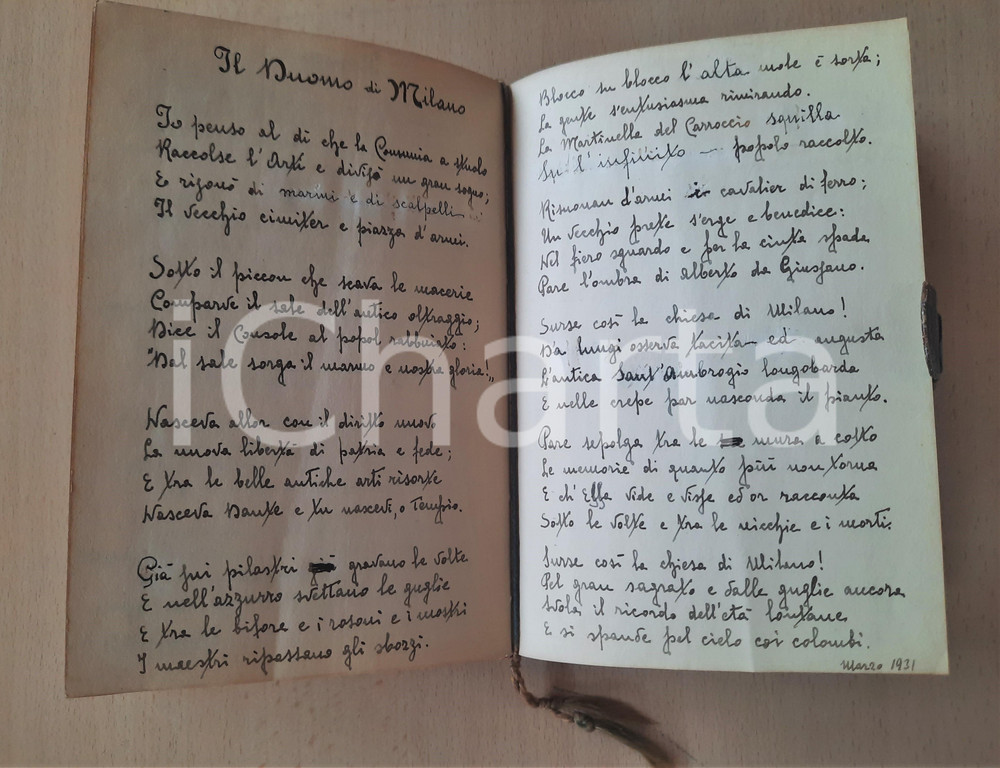 Il Duomo di Milano
Io penso al dì che la Comunia a stuolo
Raccolse l'Arti e divisò un gran sogno;
E risonò di marmi e di scalpelli
Il vecchio cimiter e piazza d'armi.
Sotto il piccon che scava le macerie
Comparve il sale dell'antico oltraggio;
Dice il Console al popol rabbuiato:
"Dal sale sorga il marmo e nostra gloria!„
Nasceva allor con il diritto nuovo
La nuova libertà di patria e fede;
E tra le belle antiche arti risorte
Nasceva Dante e tu nascevi, o Tempio.
Già sui pilastri gravano le volte
E nell'azzurro svettano le guglie
E tra le bifore e i rosoni e i mostri
I maestri ripassano gli sborzi.
Blocco su blocco l'alta mole è sorta;
La gente s'entusiasma rimirando.
La Martinella del Carroccio squilla
Su l'infinito popolo raccolto.
Risuonan d'armi i cavalier di ferro;
Un vecchio prete s'erge e benedice:
Nel fiero sguardo e per la cinta spada
Pare l'ombra di Alberto da Giussano.
Surse così la chiesa di Milano!
Da lungi osserva tacita ed augusta
L'antica Sant'Ambrogio longobarda
E nelle crepe par nasconda il pianto.
Pare sepolga tra le mura a cotto
Le memorie di quanto più non torna
E ch'Ella vide e visse ed or racconta
Sotto le volte e tra le nicchie e i morti.
Surse così la chiesa di Milano!
Pel gran sagrato e dalle guglie ancora
Svola il ricordo dell'età lontane
E si spande pel cielo coi colombi.
Marzo 1931
iCharta